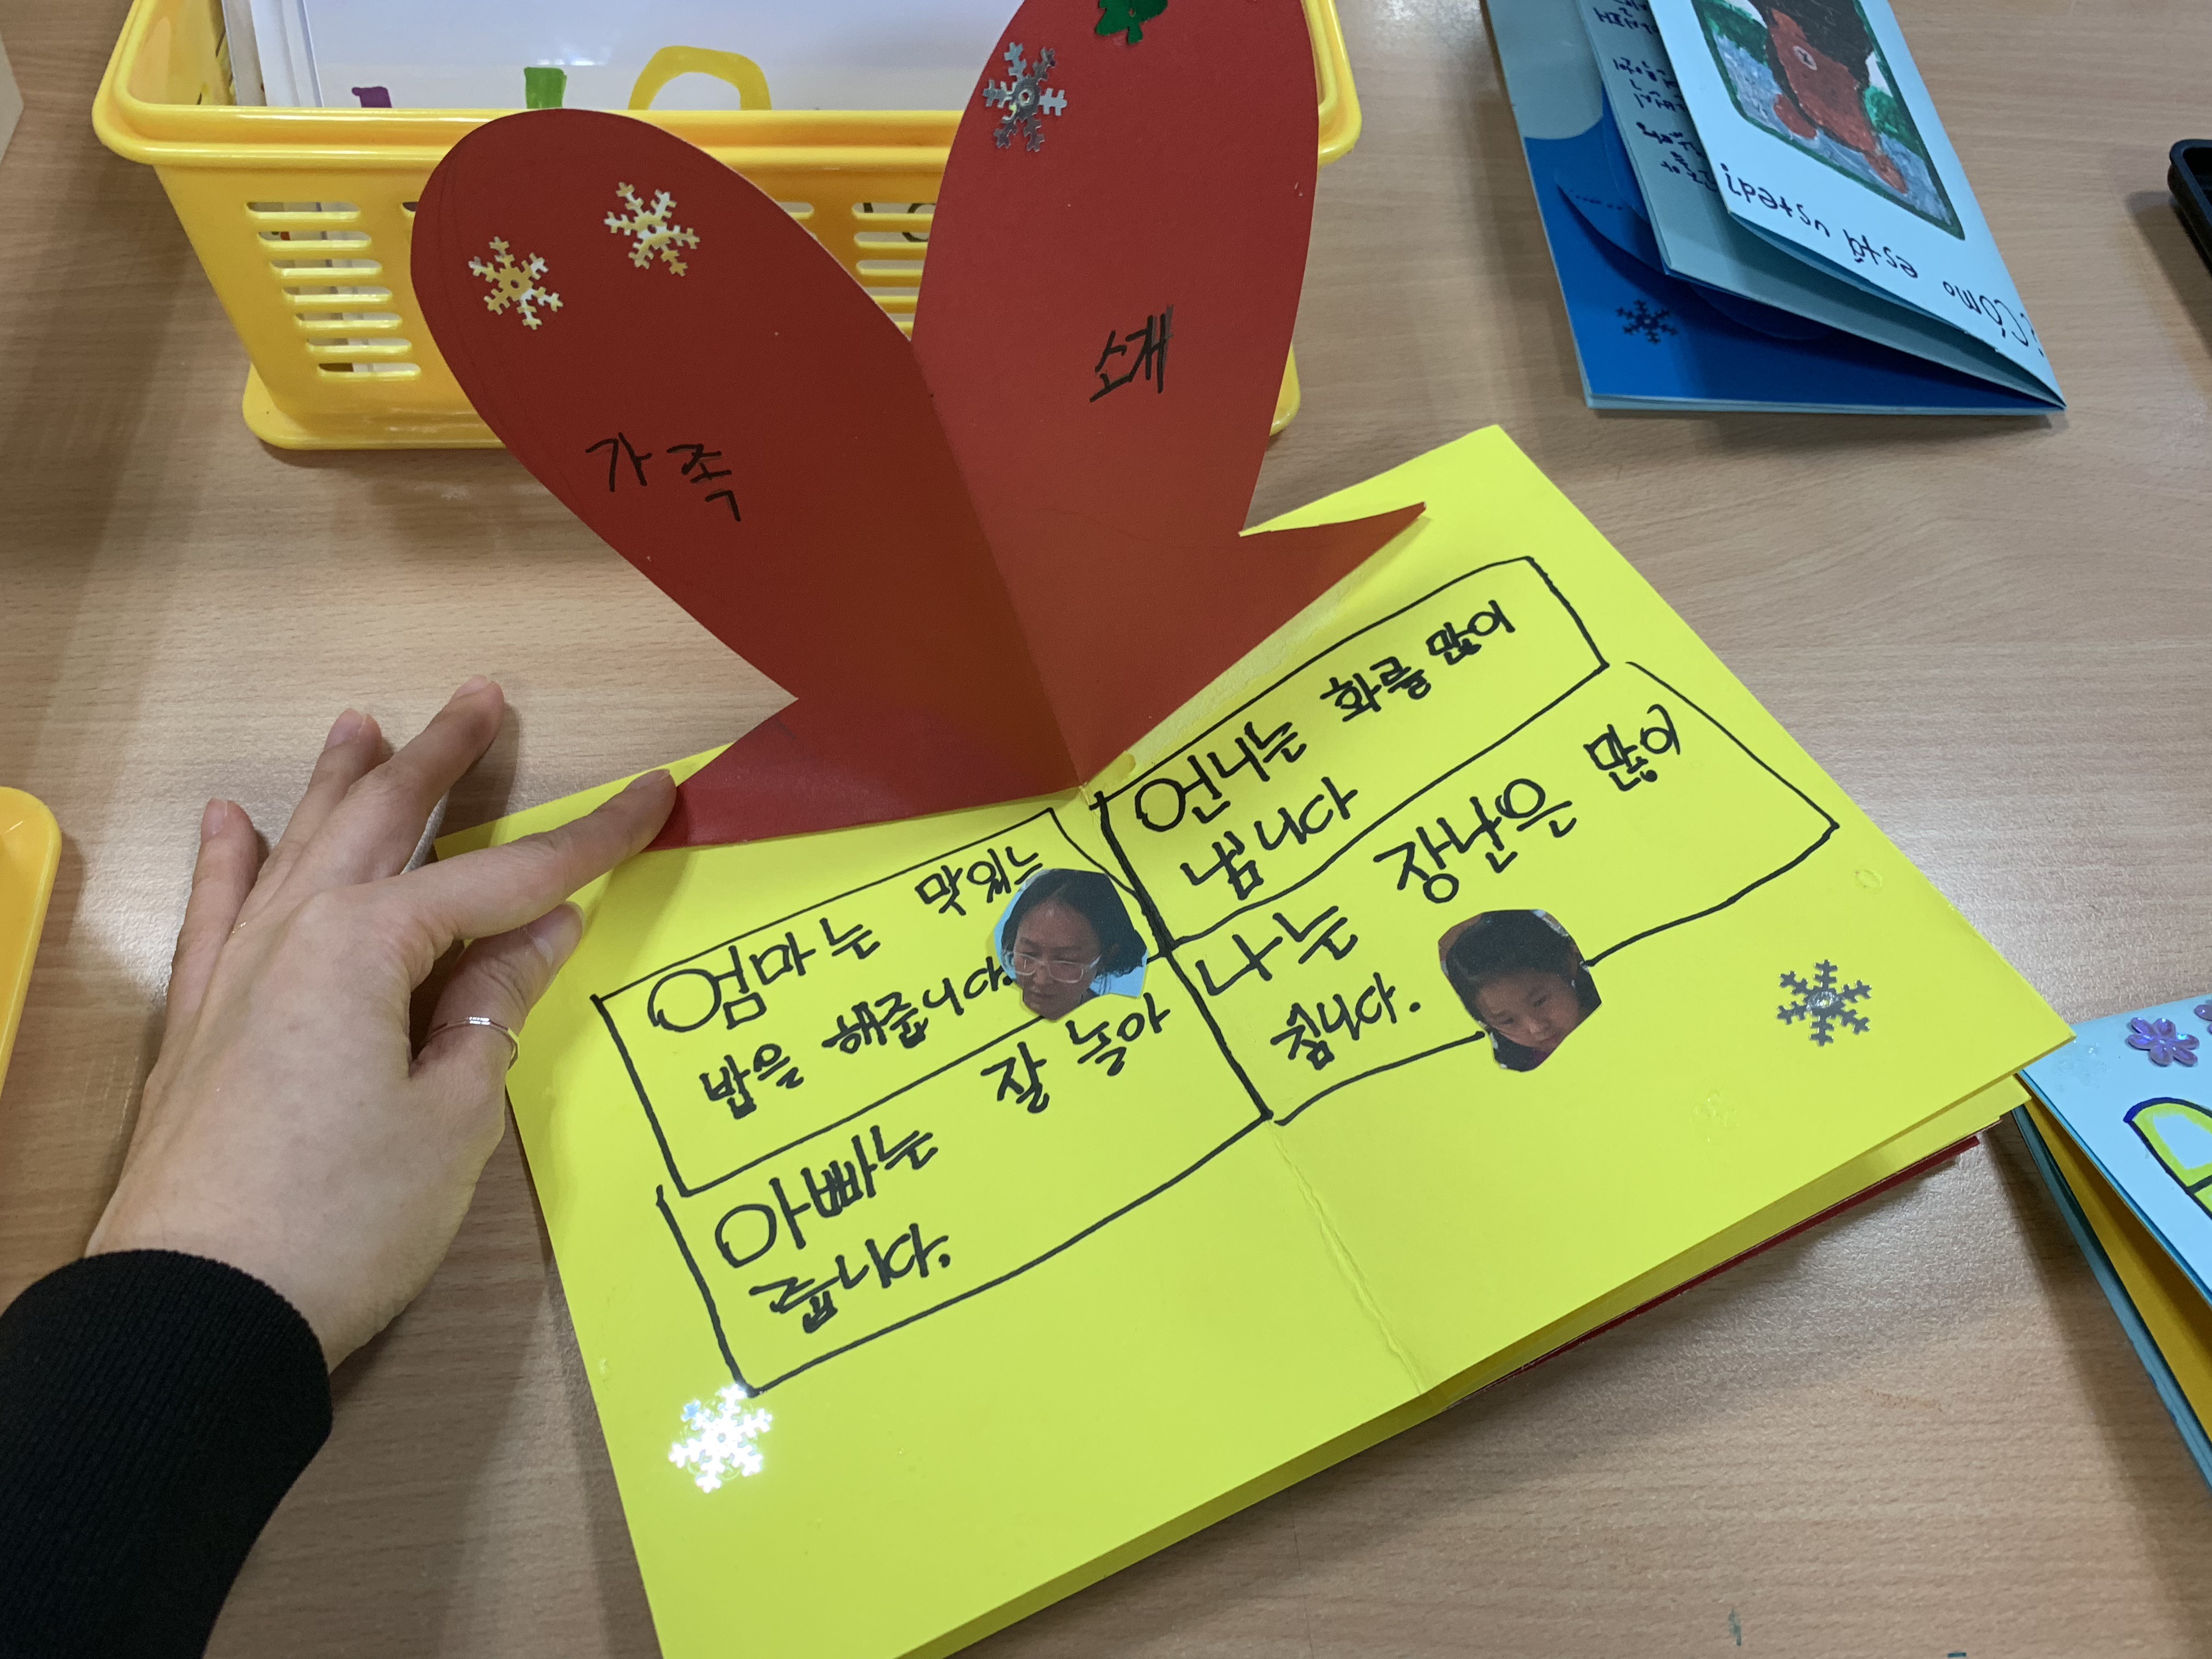 가족 소개
엄마는 맛있는
밥을 해줍니다.
아빠는 잘 놀아
줍니다.
언니는 화를 많이
냅니다
나는 장난은 많이
칩니다.
¿Cómo está usted?